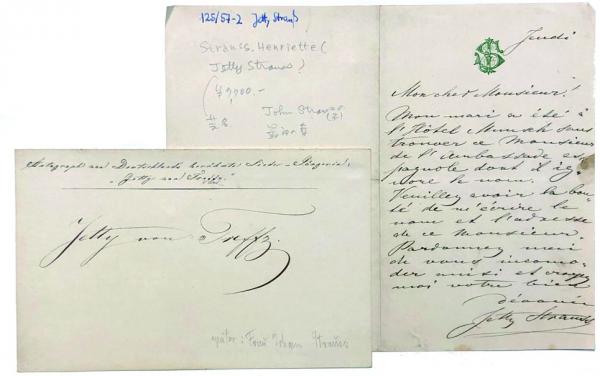 125/57-2 Jetty Strauß
Strauss, Henriette (
Jetty Strauss)
(¥9,000.-
John Strauss
(2)
Jeudi
Mon cher Monsieur!
Mon mari a été à
l'Hôtel Munsch sans
trouver ce Monsieur
de l'Ambassade es
pagnole dont il ig
nore le nom.
Veuillez avoir la bon
té de m'écrire le
nom et l'adresse
de ce Monsieur.
Pardonnez moi
de vous incommo
der ainsi et croyez
moi votre bien
dévouée
Jetty Strauß
Autograph von Deutschlands berühmte Lieder-Sängerin,
"Jetty von Treffz."
Jetty von Treffz.
später: Frau Johann Strauss